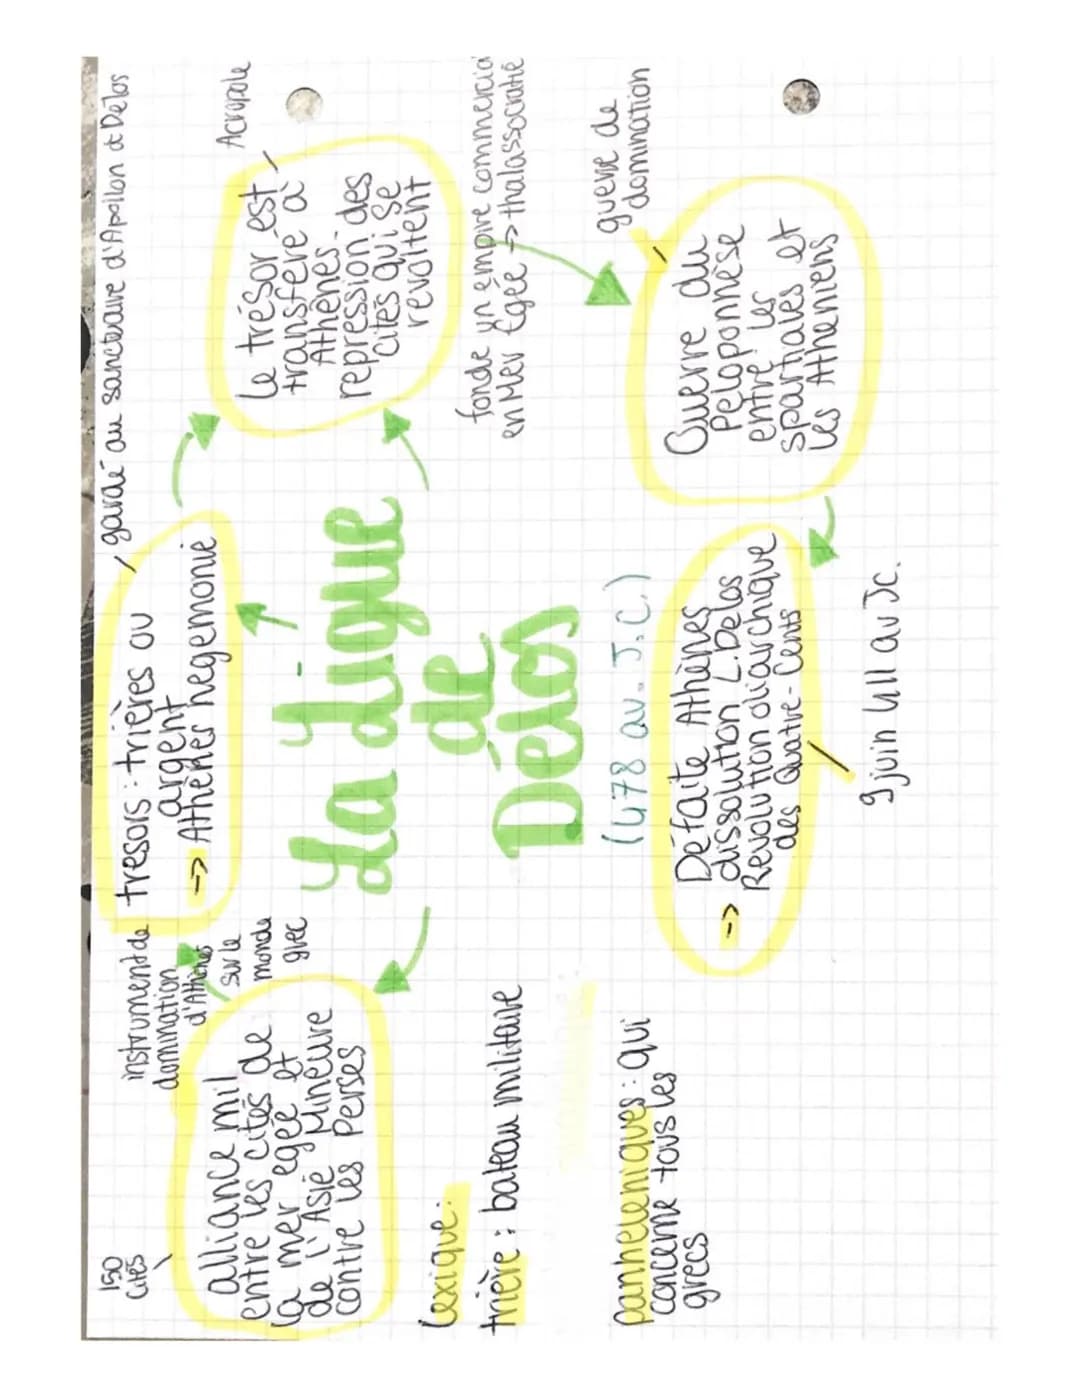 150
cités
alliance mil
entre les cités de
la mer egée et
de l'Asie Mineure
contre les Perses
instrument de
domination
d'Athènes
sur le
monde
grec
tresors : trières ou
argent
-> Athènes hegemonie
gardé au sanctuaire d'Apollon de Délos
Acropole
Le trésor est
transféré à
Athènes
repression des
cités qui se
revoltent
fonde un empire commercial
en Mer Egée -> thalassocratie
La ligue
de
Délos
(478 av. J.C.)
guerre de
domination
Guerre du
Péloponnèse
entre les
spartiates et
les Atheniens
-> Défaite Athènes
dissolution L. Delos
Revolution oliarchique
des Quatre-Cents
9 juin 411 av Jc.
Lexique :
trière : bateau militaire
panheleniques : qui
concerne tous les
grecs